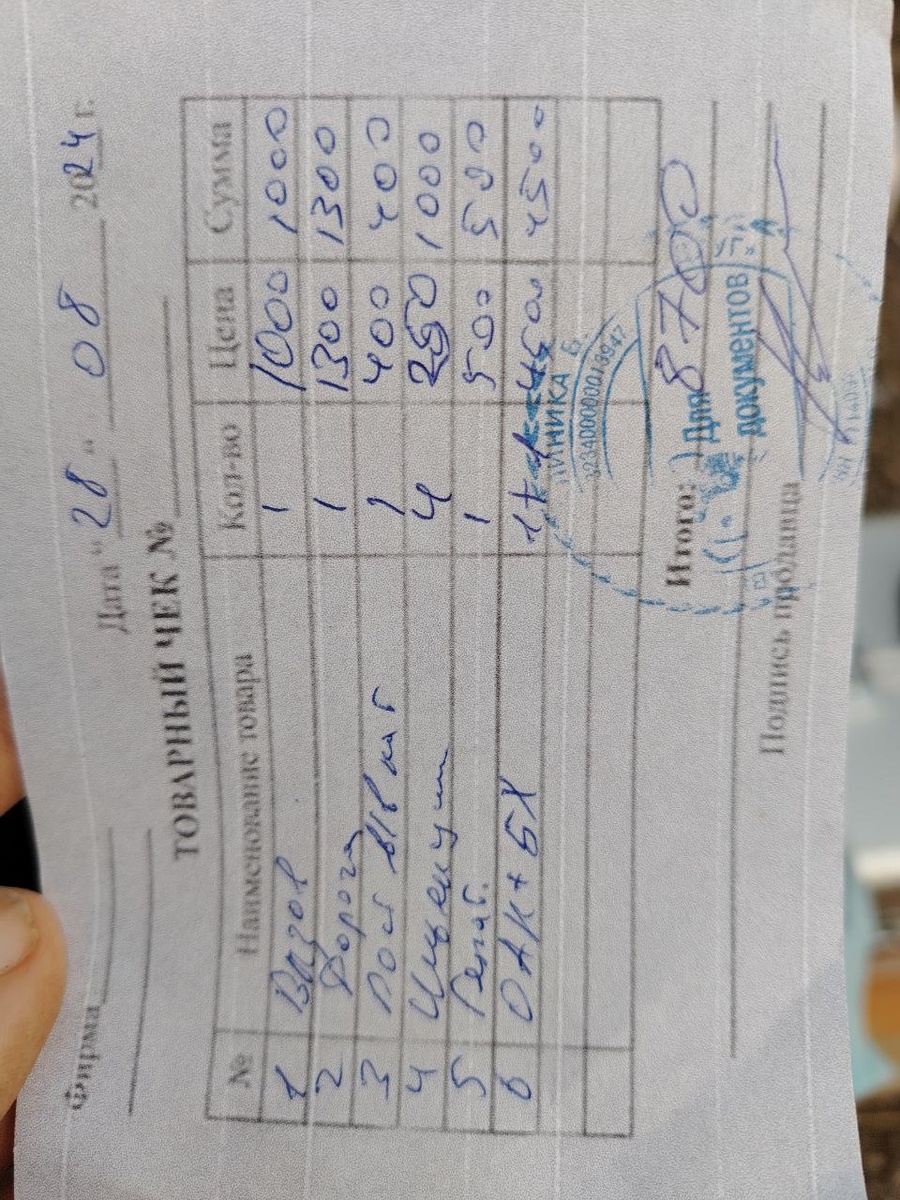 Фирма
Дата "28" 08 2024 г.
ТОВАРНЫЙ ЧЕК №
№ Наименование товара Кол-во Цена Сумма
1 Вызов 1 1000 1000
2 Дорога 1 1300 1300
3 Пост в/в кат 1 400 400
4 4 250 1000
5 1 500 500
6 ОАК + БХ 1 4500 4500
Итого: 8700
Для
документов
Подпись продавца